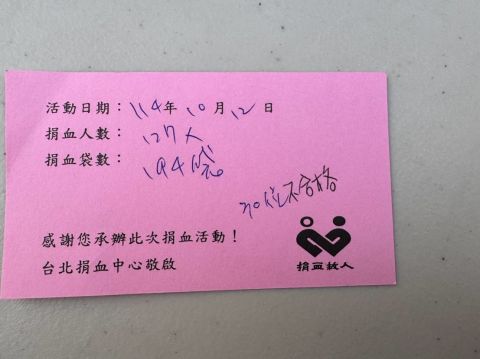 活動日期：114年10月12日
捐血人數：127人
捐血袋數：194袋
20位不合格
感謝您承辦此次捐血活動！
台北捐血中心敬啟
捐血救人